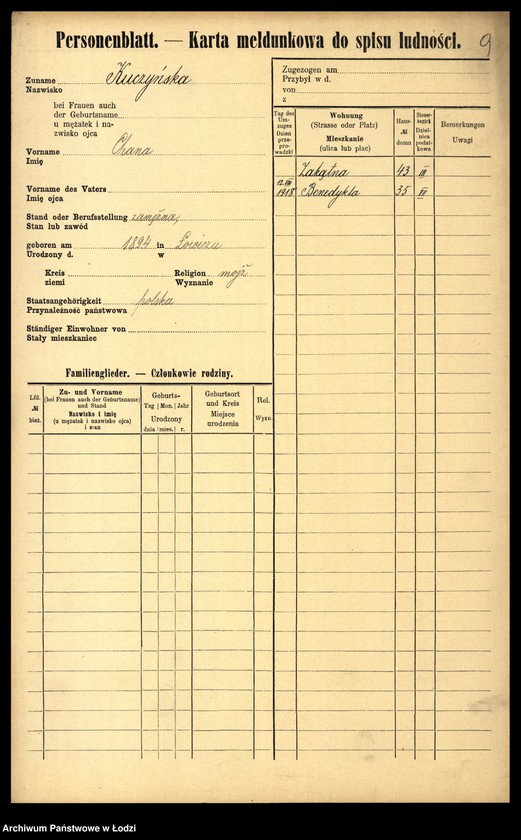 Personenblatt. — Karta meldunkowa do spisu ludności.
9
Zuname Kuczyńska
Nazwisko
bei Frauen auch
der Geburtsname
u mężatek i na-
zwisko ojca
Vorname Chana
Imię
Vorname des Vaters
Imię ojca
Stand oder Berufsstellung zamężna
Stan lub zawód
geboren am 1894 in Łowiczu
Urodzony d. w
Kreis Religion mojż
ziemi Wyznanie
Staatsangehörigkeit polska
Przynależność państwowa
Ständiger Einwohner von
Stały mieszkaniec
Familienglieder. — Członkowie rodziny.
Lfd.
№
bież.
Zu- und Vorname
(bei Frauen auch der Geburtsname)
und Stand
Nazwisko i imię
(u mężatek i nazwisko ojca)
i stan
Geburts-
Tag Mon. Jahr
Urodzony
dnia mies. r.
Geburtsort
und Kreis
Miejsce
urodzenia
Rel.
Wyzn.
Zugezogen am
Przybył w d.
von
z
Tag des
Um-
zuges
Dzień
prze-
pro-
wadzki
Wohnung
(Strasse oder Platz)
Mieszkanie
(ulica lub plac)
Haus-
№
domu
Steuer-
bezirk
Dziel-
nica
podat-
kowa
Bemerkungen
Uwagi
Zakątna 43 III
12.VII 1918 Benedykta 35 VI
Archiwum Państwowe w Łodzi